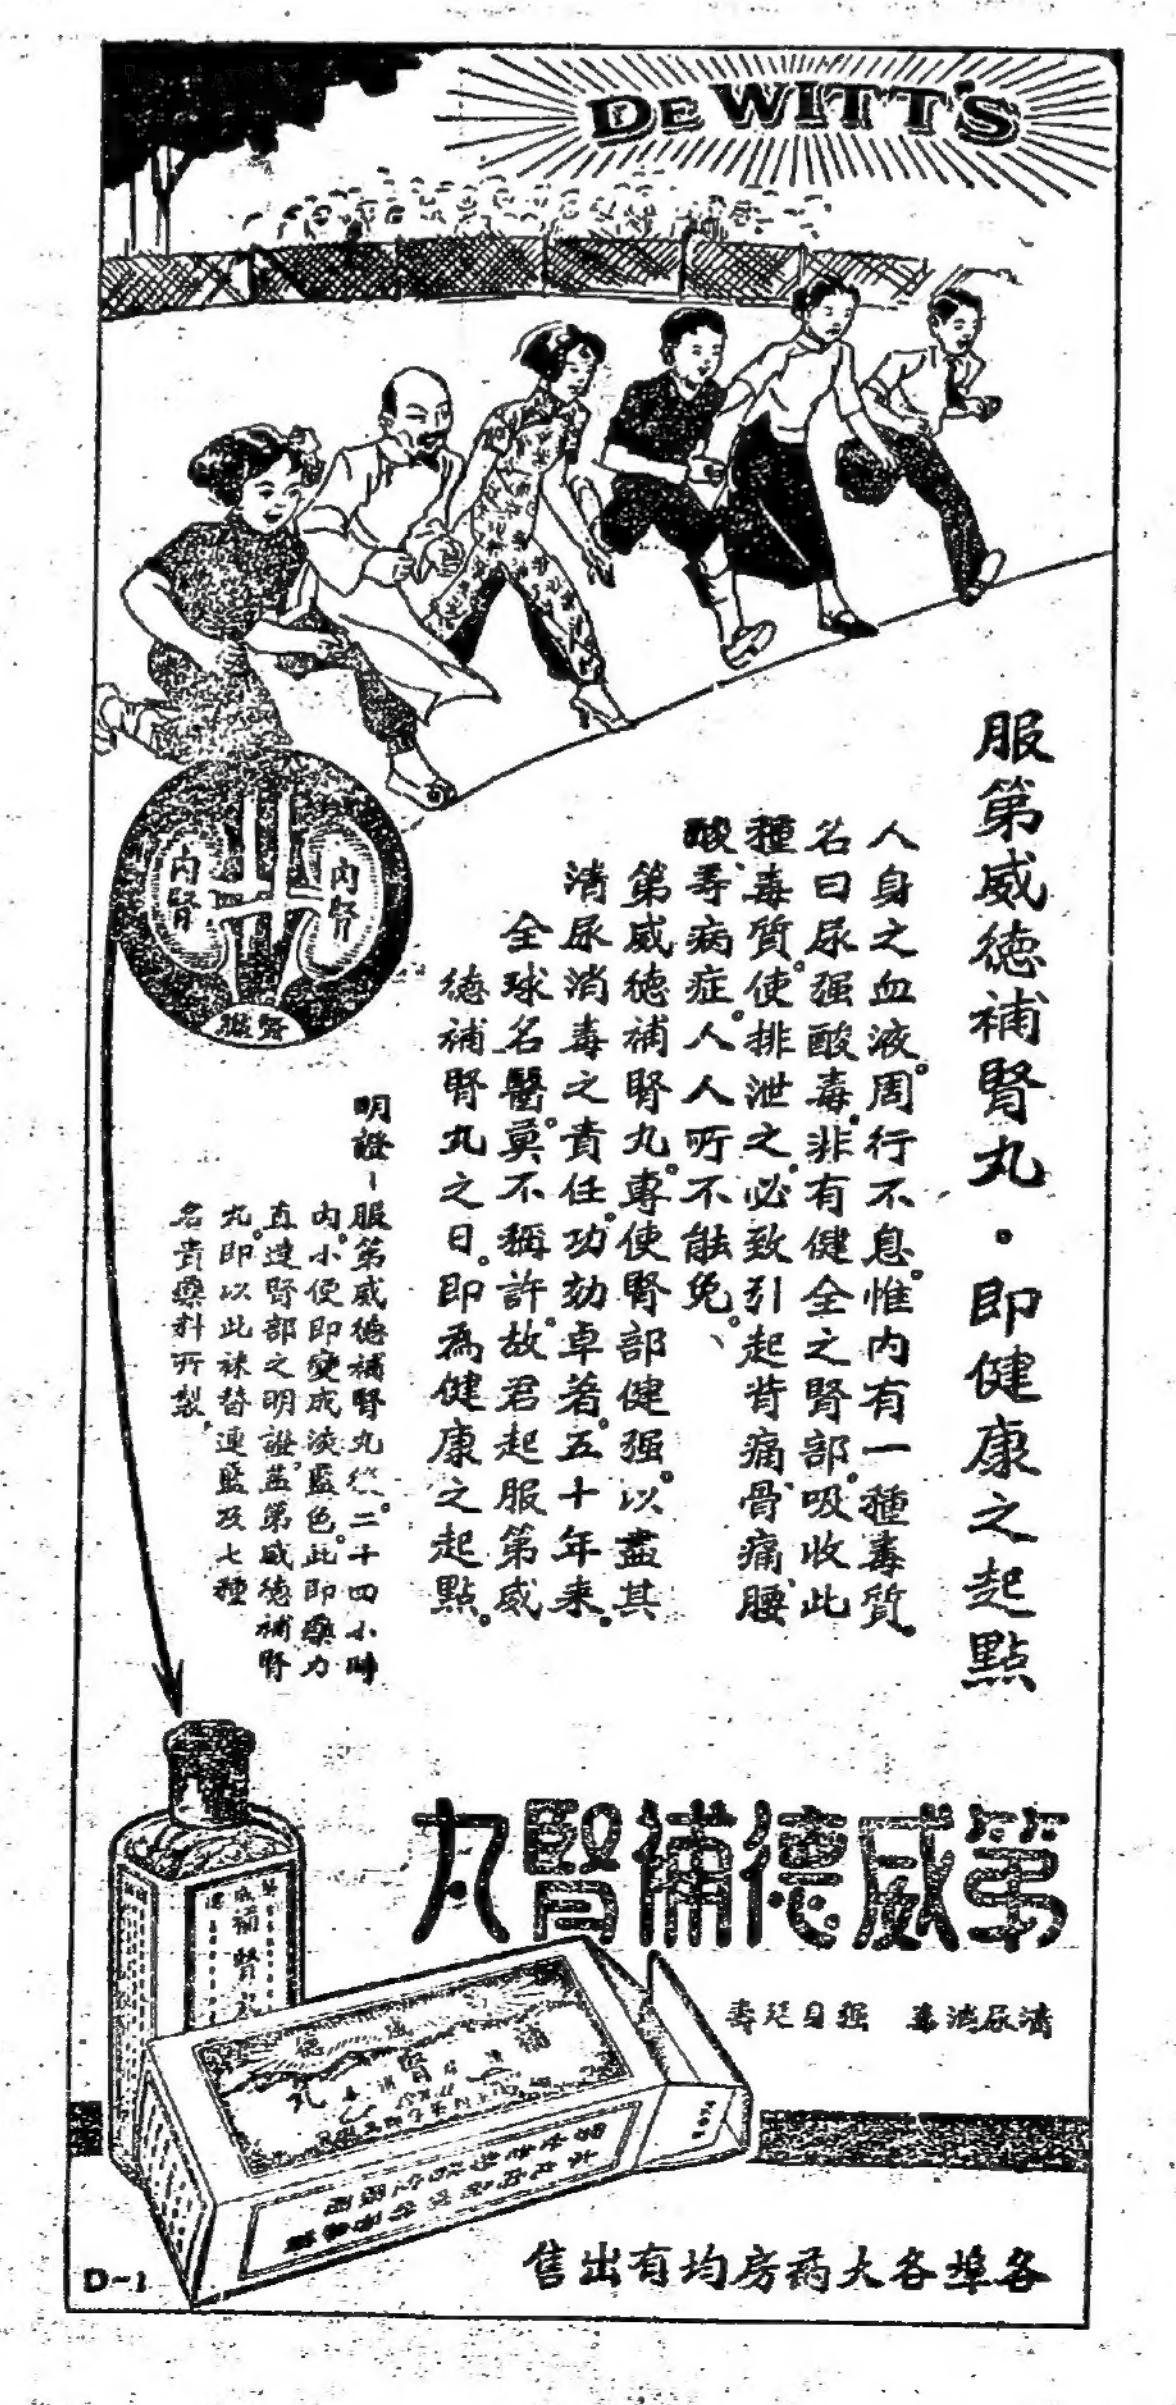 DEWITT'S
服第威德補腎丸・即健康之起點
人身之血液。周行不息。惟内有一種毒質。
名曰尿强酸毒。非有健全之腎部。吸收此
種毒質。使排泄之。必致引起背痛、骨痛、腰
酸、等病症。人人所不能免。
第威德補腎丸。專使腎部健强。以盡其
清尿消毒之責任。功効卓著。五十年来。
全球名醫。莫不稱許。故君起服第威
德補腎丸之日。即為健康之起點。
内腎
内腎
明證-服第威德補腎丸後。二十四小時
内。小便即變成淡藍色。此即藥力
直達腎部之明證。蓋第威德補腎
丸。即以此袜替連藍及七種
名貴藥料所製。
第威德補腎丸
清尿消毒 强身延壽
補腎
各埠各大葯房均有出售
D-1